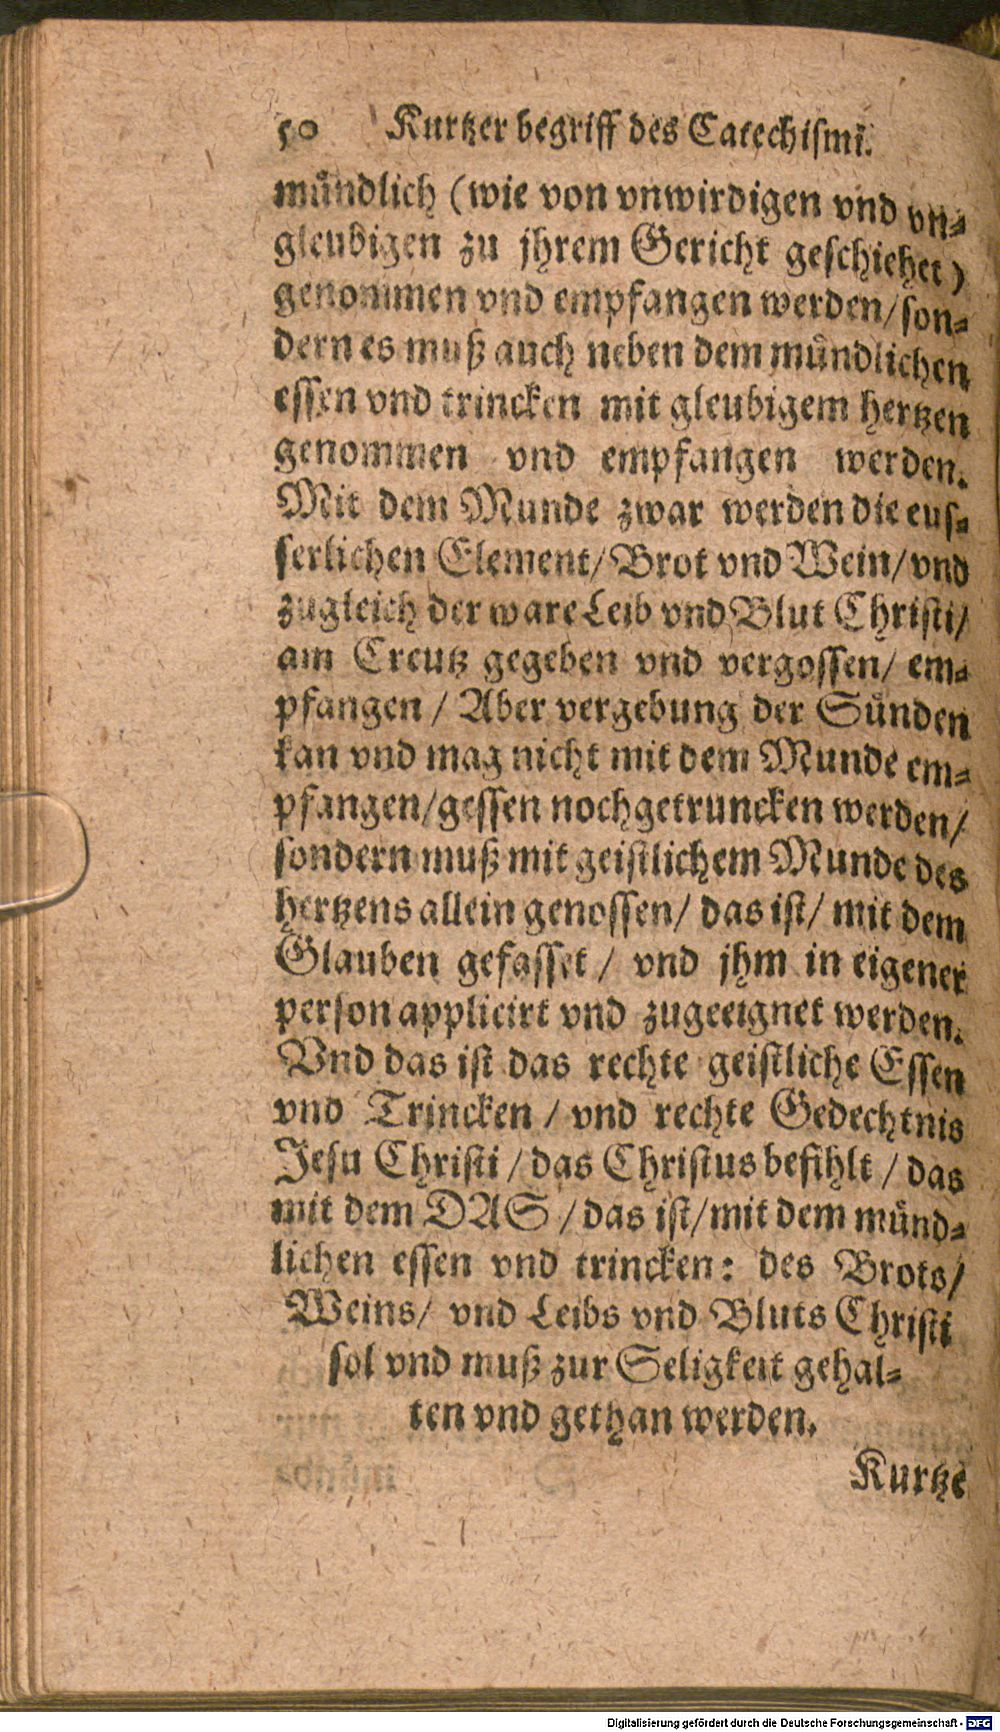 50 Kurtzer begriff des Catechismi.
mündlich (wie von vnwirdigen vnd vn⸗
gleubigen zu jhrem Gericht geschiehet)
genommen vnd empfangen werden/son⸗
dern es muß auch neben dem mündlichen
essen vnd trincken mit gleubigem hertzen
genommen vnd empfangen werden.
Mit dem Munde zwar werden die eus⸗
serlichen Element/Brot vnd Wein/vnd
zugleich der ware Leib vnd Blut Christi/
am Creutz gegeben vnd vergossen/ em⸗
pfangen / Aber vergebung der Sünden
kan vnd mag nicht mit dem Munde em⸗
pfangen/gessen noch getruncken werden/
sondern muß mit geistlichem Munde des
hertzens allein genossen/ das ist/ mit dem
Glauben gefasset / vnd jhm in eigener
person applicirt vnd zugeeignet werden.
Vnd das ist das rechte geistliche Essen
vnd Trincken / vnd rechte Gedechtnis
Jesu Christi / das Christus befihlt / das
mit dem DAS / das ist/mit dem münd⸗
lichen essen vnd trincken: des Brots/
Weins/ vnd Leibs vnd Bluts Christi
sol vnd muß zur Seligkeit gehal⸗
ten vnd gethan werden.
Kurtze
Digitalisierung gefördert durch die Deutsche Forschungsgemeinschaft - DFG